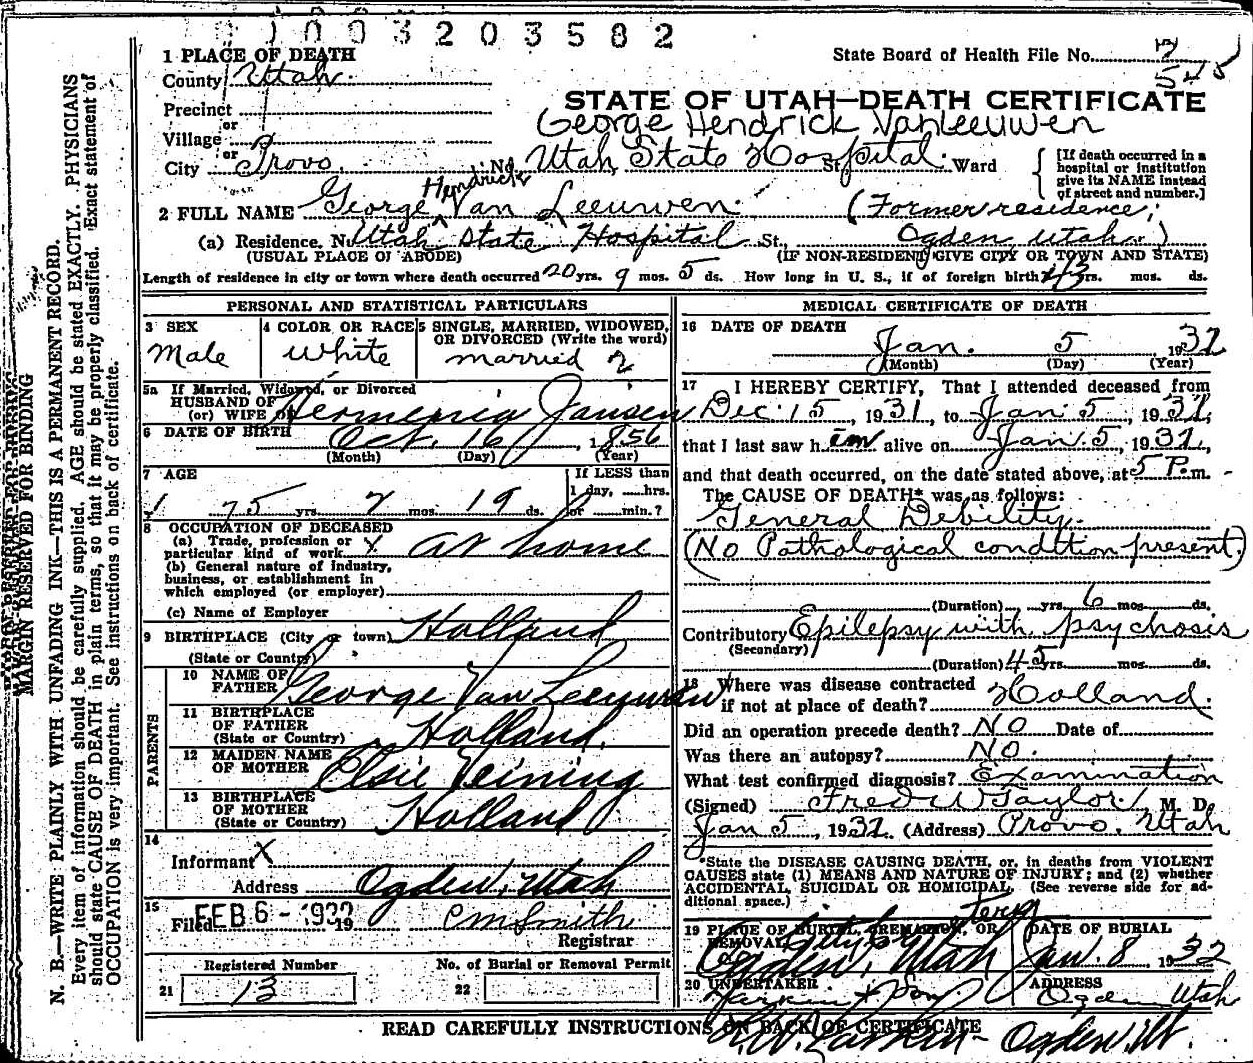 01003203582
1 PLACE OF DEATH
State Board of Health File No. 7
County Utah
545
Precinct
STATE OF UTAH—DEATH CERTIFICATE
or
George Hendrick VanLeeuwen
Village
or
City Provo. No. Utah State Hospital St. Ward
[If death occurred in a hospital or institution give its NAME instead of street and number.]
Hendrick
2 FULL NAME George Van Leeuwen. (Former residence;
(a) Residence. No. Utah State Hospital St., Ogden, Utah.)
(USUAL PLACE OF ABODE) (IF NON-RESIDENT GIVE CITY OR TOWN AND STATE)
Length of residence in city or town where death occurred 20 yrs. 9 mos. 5 ds. How long in U. S., if of foreign birth? 43 yrs. mos. ds.
PERSONAL AND STATISTICAL PARTICULARS
3 SEX
Male
4 COLOR OR RACE
White
5 SINGLE, MARRIED, WIDOWED,
OR DIVORCED (Write the word)
married 2
5a If Married, Widowed, or Divorced
HUSBAND OF
(or) WIFE of Hermenia Jansen
6 DATE OF BIRTH Oct. 16, 1856
(Month) (Day) (Year)
7 AGE
If LESS than
1 day, hrs.
75 yrs. 2 mos. 19 ds. or min.?
8 OCCUPATION OF DECEASED
(a) Trade, profession or
particular kind of work X at home
(b) General nature of industry,
business, or establishment in
which employed (or employer)
(c) Name of Employer
9 BIRTHPLACE (City or town) Holland
(State or Country)
PARENTS
10 NAME OF
FATHER George Van Leeuwen
11 BIRTHPLACE
OF FATHER
(State or Country) Holland.
12 MAIDEN NAME
OF MOTHER Elsie Veining
13 BIRTHPLACE
OF MOTHER
(State or Country) Holland
14
Informant X
Address Ogden, Utah
15
Filed FEB 6 - 1932 19 CM Smith
Registrar
Registered Number
21 13
No. of Burial or Removal Permit
22
MEDICAL CERTIFICATE OF DEATH
16 DATE OF DEATH
Jan. 5 1932
(Month) (Day) (Year)
17 I HEREBY CERTIFY, That I attended deceased from
Dec. 15, 1931, to Jan. 5, 1932,
that I last saw h im alive on Jan. 5, 1932,
and that death occurred, on the date stated above, at 5 P. m.
The CAUSE OF DEATH* was as follows:
General Debility.
(No Pathological condition present.)
(Duration) yrs. 6 mos. ds.
Contributory Epilepsy with psychosis
(Secondary)
(Duration) 45 yrs. mos. ds.
18 Where was disease contracted
if not at place of death? Holland.
Did an operation precede death? No Date of
Was there an autopsy? No.
What test confirmed diagnosis? Examination
(Signed) Fred W Taylor, M. D.
Jan 5, 1932. (Address) Provo, Utah
*State the DISEASE CAUSING DEATH, or, in deaths from VIOLENT
CAUSES state (1) MEANS AND NATURE OF INJURY; and (2) whether
ACCIDENTAL, SUICIDAL OR HOMICIDAL. (See reverse side for ad-
ditional space.)
19 PLACE OF BURIAL, CREMATION, OR
REMOVAL City Cemetery
Ogden, Utah
DATE OF BURIAL
Jan. 8, 1932
20 UNDERTAKER
Larkin & Son.
ADDRESS
Ogden Utah
Larkin - Ogden, Ut.
READ CAREFULLY INSTRUCTIONS ON BACK OF CERTIFICATE
MARGIN RESERVED FOR BINDING
N. B.—WRITE PLAINLY WITH UNFADING INK—THIS IS A PERMANENT RECORD.
Every item of information should be carefully supplied. AGE should be stated EXACTLY. PHYSICIANS
should state CAUSE OF DEATH in plain terms, so that it may be properly classified. Exact statement of
OCCUPATION is very important. See instructions on back of certificate.